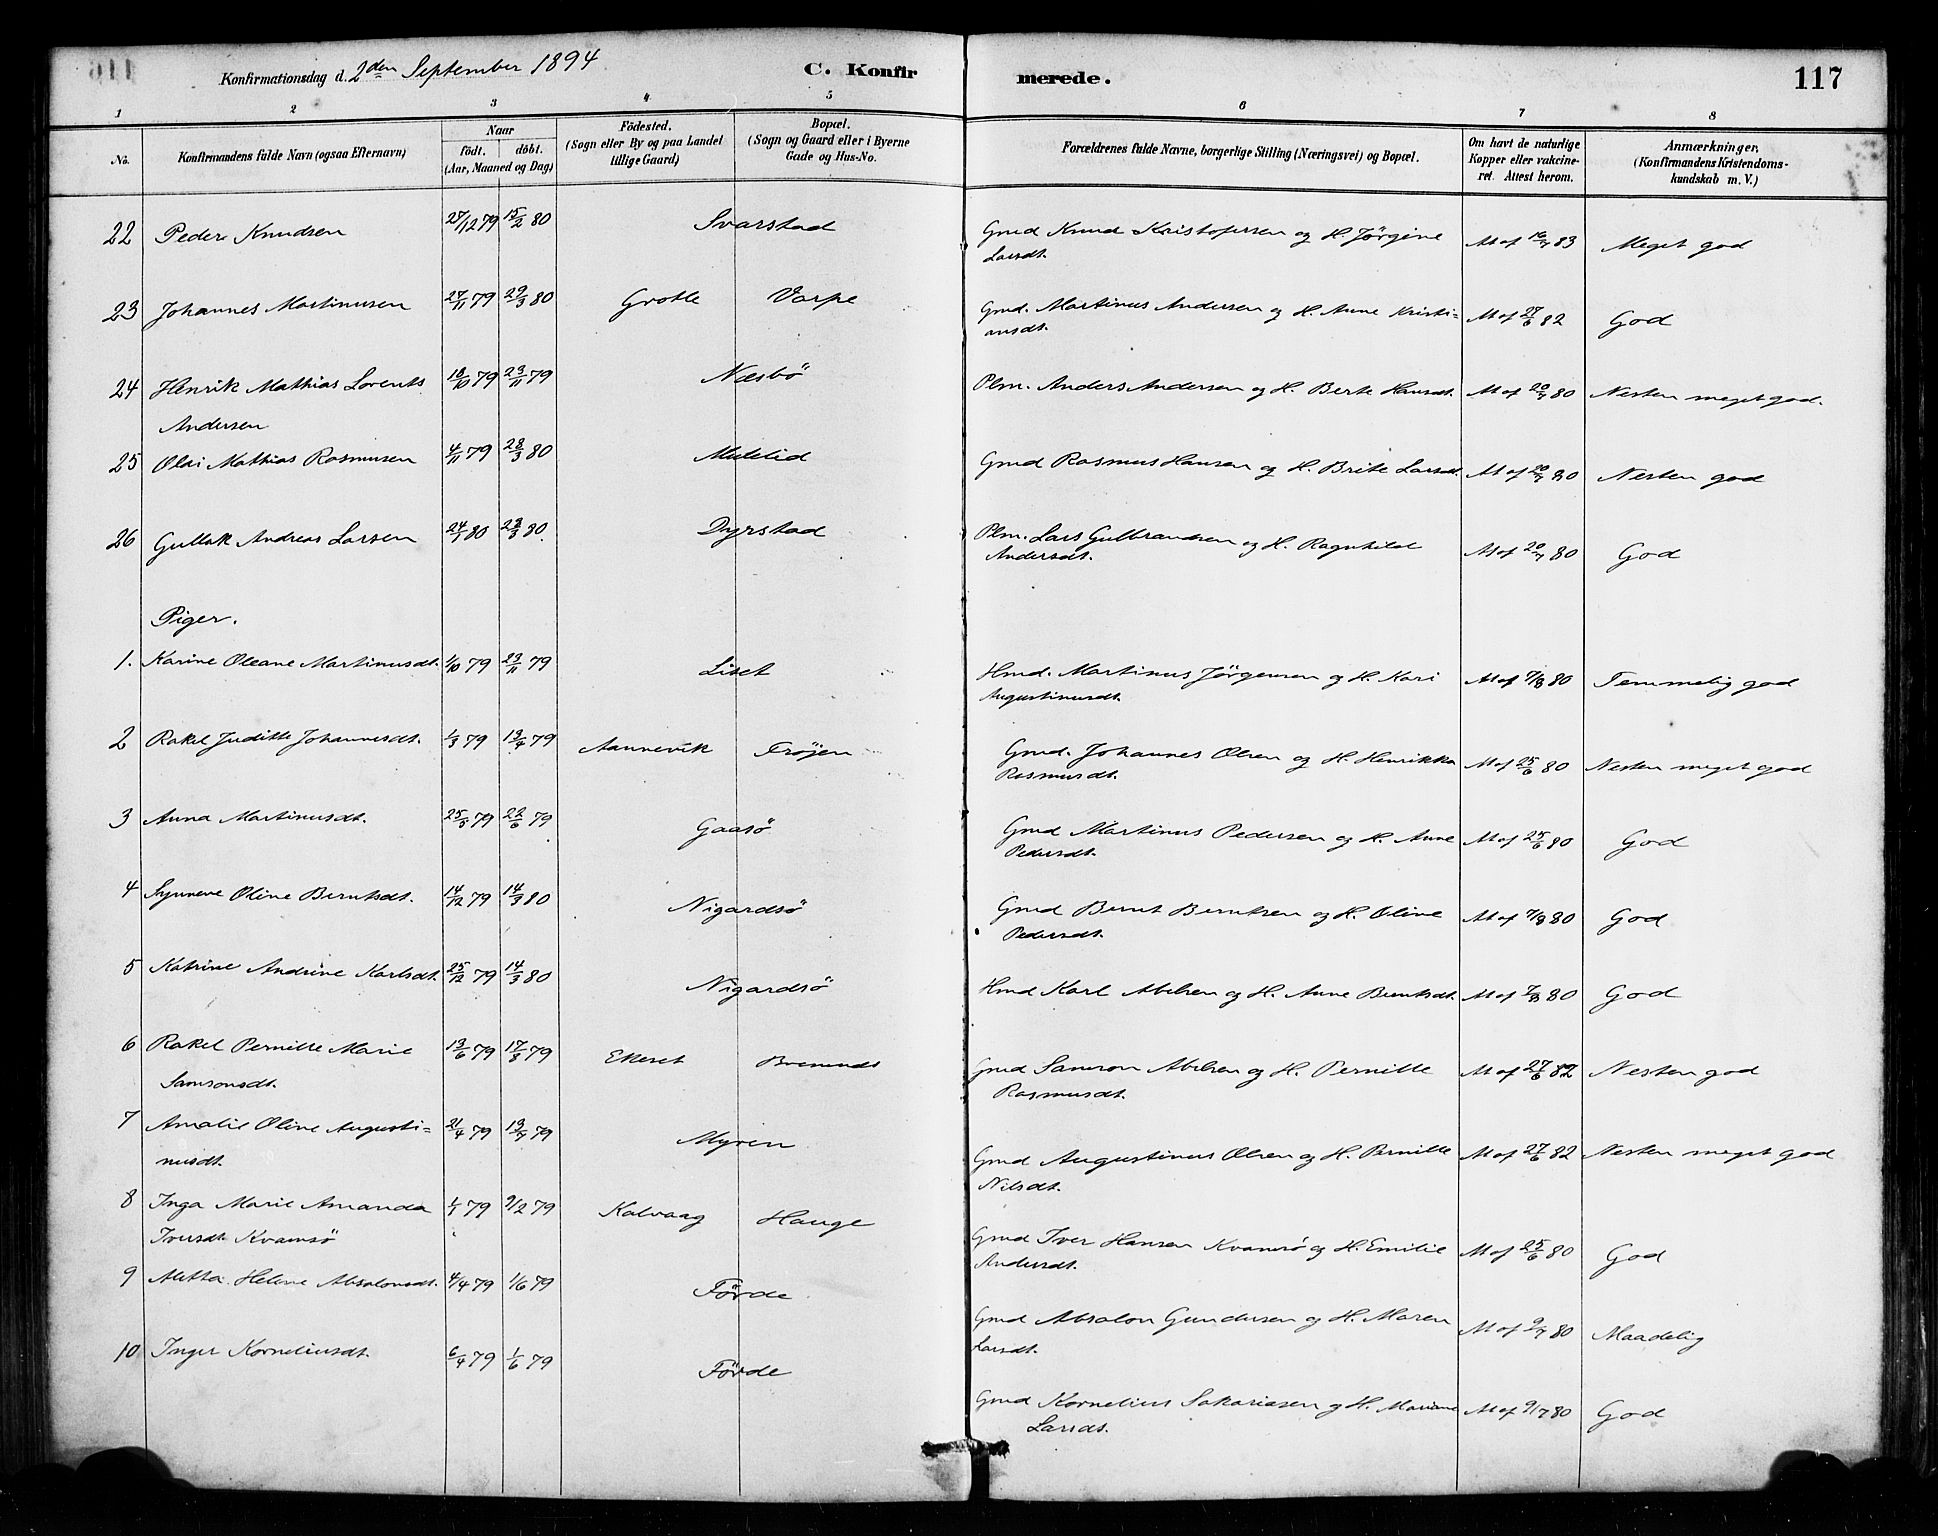 Konfirmationsdag d. 2den September 1894 C. Konfirmerede. 117
1 2 3 4 5 6 7 8
No. Konfirmandens fulde Navn (ogsaa Efternavn) Naar födt. döbt. (Aar, Maaned og Dag) Födested. (Sogn eller By og paa Landet tillige Gaard) Bopæl. (Sogn og Gaard eller i Byerne Gade og Hus-No. Forældrenes fulde Navne, borgerlige Stilling (Næringsvei) og Bopæl. Om havt de naturlige Kopper eller vakcineret. Attest herom. Anmærkninger. (Konfirmandens Kristendomskundskab m. V.)
22 Peder Knudsen 27/12 79 15/2 80 Svarstad Gmd Knud Kristofersen og H. Jörgine At af 83 Meget god
Larsdt.
23 Johannes Martinusen 27/11 79 29/3 80 Grotle Varpe Gmd. Martinus Andersen og H. Anne Kristi= At af 27/6 82 God
ansdt.
24 Henrik Mathias Lorents 18/10 79 23/11 79 Næsbö Plm. Anders Andersen og H. Berte Hansdt. At af 20/7 80 Nesten meget god.
Andersen
25 Olai Mathias Rasmusen 4/11 79 28/3 80 Mulelid Gmd Rasmus Hansen og H. Brite Larsdt. At af 20/7 80 Nesten god
26 Gullak Andreas Larsen 24/1 80 28/3 80. Dyrstad Plm. Lars Gulbrandsen og H. Ragnhild At af 20/7 80 God
Andersdt.
Piger.
1. Karine Oleane Martinusdt. 1/10 79 23/11 79 Liset Hmd. Martinus Jörgensen og H. Kari At af 7/8 80 Temmelig god
Augustinusdt.
2 Rakel Juditte Johannesdt. 1/3 79 13/4 79 Aannevik Fröjen Gmd. Johannes Olsen og H. Henrikka At af 25/6 80 Nesten meget god
Rasmusdt.
3 Anna Martinusdt. 25/3 79 22/6 79 Gaasö Gmd Martinus Pedersen og H. Anne At af 25/6 80 God
Pedersdt.
4 Synneve Oline Berntsdt. 14/12 79 14/3 80 Nigardsö Gmd Bernt Berntsen og H. Oline At af 7/8 80 God
Pedersdt.
5 Katrine Andrine Karlsdt. 25/12 79 14/3 80 Nigardsö Hmd Karl Abelsen og H. Anne Berntsdt. At af 7/8 80 God
6 Rakel Pernille Marie 13/6 79 17/8 79 Ekeset Gmd Samson Abelsen og H. Pernille At af 27/6 82 Nesten god
Samsonsdt. Rasmusdt.
7 Amalie Oline Augusti= 21/4 79 13/7 79 Myren Gmd Augustinus Olsen og H. Pernille At af 27/6 82 Nesten meget god
nusdt. Nilsdt.
8 Inga Marie Amanda 1/1 79 9/2 79 Kalvaag Hauge Gmd Iver Hansen Kvamsö og H. Emilie At af 25/6 80 God
Iversdt Kvamsö Andersdt.
9 Aletta Helene Absalonsdt. 4/4 79 1/6 79 Förde Gmd Absalon Gundersen og H. Maren At af 9/7 80 Maadelig
Larsdt.
10 Inger Korneliusdt. 6/4 79 1/6 79 Förde Gmd Kornelius Sakariasen og H. Mariane At af 9/7 80 God
Larsdt.